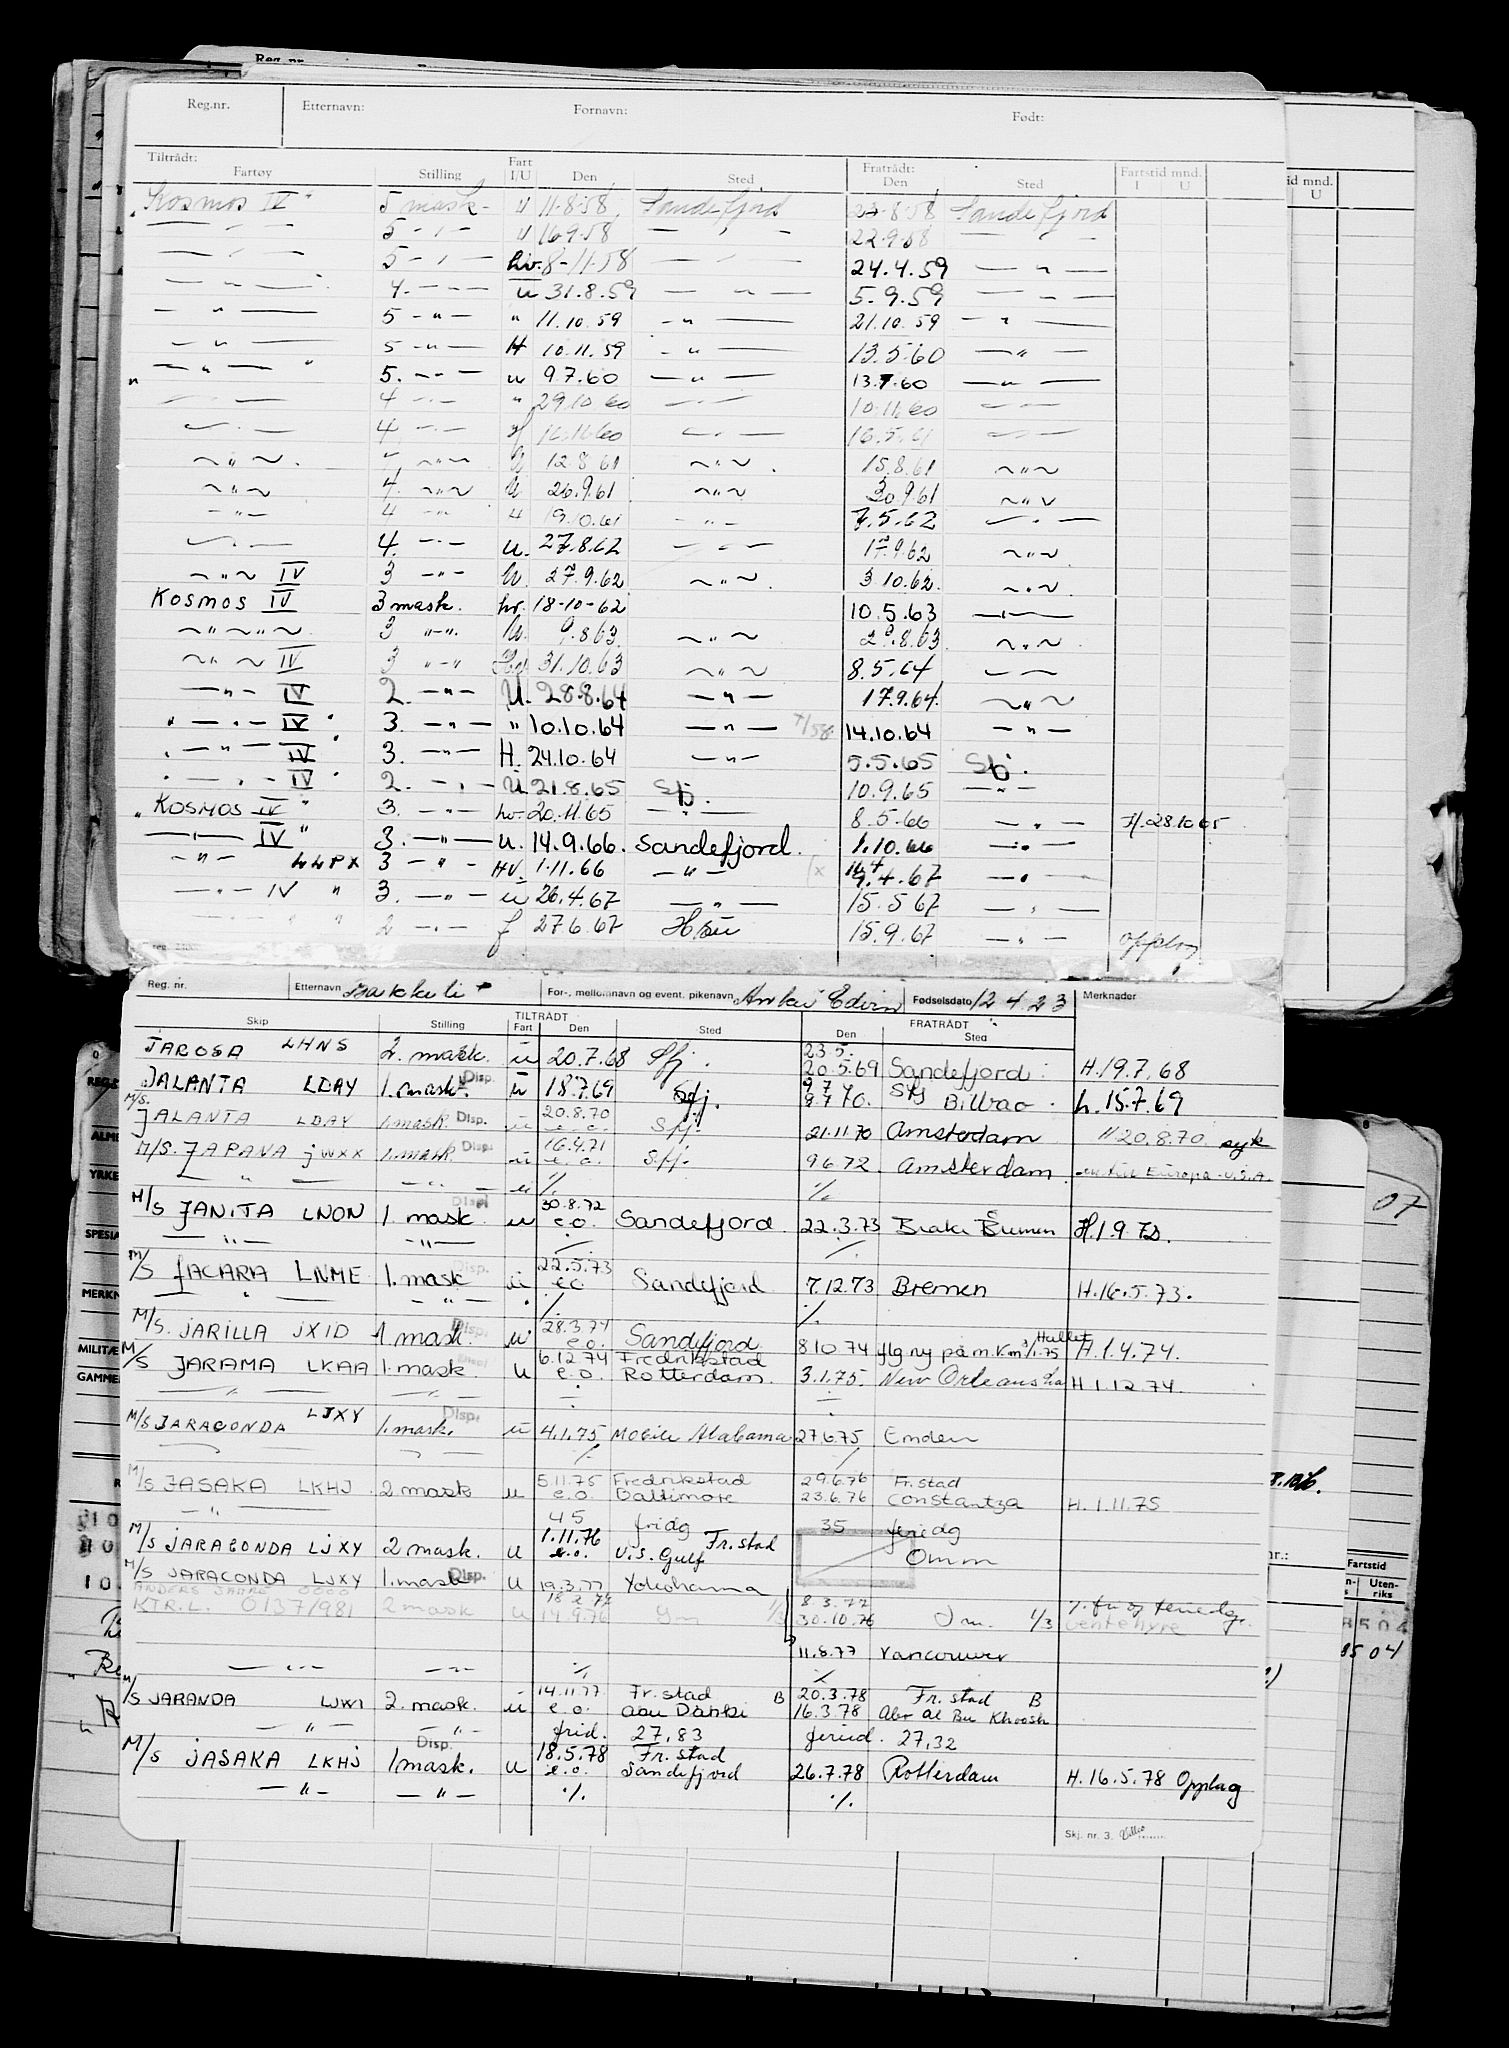 Reg.nr. Etternavn: Fornavn: Født:
Tiltrådt: Fartøy Stilling Fart I/U Den Sted Fratrådt: Den Sted Fartstid mnd. I U
"Kosmos IV" 5 mask- u 11-8-58 Sandefjord 23-8-58 Sandefjord
— " — 5 - " - u 16.9.58 — " — 22.9.58 — " —
— " — 5 - " - hv. 8-11-58 — " — 24.4.59 — " —
— " — 4. — " — u 31.8.59 — " — 5.9.59 — " —
— " — 5 - " - " 11.10.59 — " — 21.10.59 — " —
— " — 5 - " - H 10.11.59 — " — 13.5.60 — " —
" — " — " 5. - " - u 9.7.60 — " — 13.7.60 — " —
— " — 4 - " - " 29.10.60 — " — 10.11.60 — " —
— " — 4. - " - 16.11.60 — " — 16.5.61 — " —
~ " ~ 4. ~ " ~ 12.8.61 ~ " ~ 15.8.61 ~ " ~
~ " ~ 4. ~ " ~ U 26.9.61 ~ " ~ 30.9.61 ~ " ~
- " - 4 - " - 19.10.61 - " - 7.5.62 — " —
— " — 4. - " - u. 27.8.62 — " — 17.9.62 ~ " ~
~ " ~ IV 3 - " - U. 27.9.62 ~ " ~ 3.10.62. ~ " ~
KOSMOS IV 3 mask. hv. 18-10-62 10.5.63 — " —
~ " ~ " ~ 3 " - " U. 9.8.63 ~ " ~ 29.8.63 ~ " ~
~ " ~ IV 3 " - " 31.10.63 ~ " ~ 8.5.64 — —
— " — IV 2. — " — U. 28.8.64 — " — 17.9.64. ~ " ~
" — " — IV " 3. — " — " 10.10.64 — " — 14.10.64 — " —
" — " — IV " 3. — " — H. 24.10.64 — " — 5.5.65 Sfj.
" — " — IV " 2. — " — U 21.8.65 Sfj. 10.9.65 — " —
"KOSMOS IV" 3. — " — hv. 20.11.65 — " — 8.5.66 — " — H. 28.10.65
— " — IV " 3. — " — u. 14.9.66. Sandefjord. 1.10.66 — " —
— " — LLPX 3 - " - HV. 1.11.66 — " — 9.4.67 — " —
— " — IV " 3. — " — u 26.4.67 — " — 15.5.67 — " —
" " 2 — " — f 27.6.67 15.9.67 — " — opplag
Reg. nr. Etternavn Bakkeli For-, mellomnavn og event. pikenavn Edvin Fødselsdato 12 4 23 Merknader
Skip Stilling TILTRÅDT Fart Den Sted FRATRÅDT Den Sted
JAROSA LHNS 2. mask. u 20.7.68 Sfj. 23.5. 20.5.69 Sandefjord H. 19.7.68
JALANTA LDAY 1. mask. Disp. u 18.7.69 Sfj. 9.7.70 9.7.70. Sfj Bilbao. h. 15.7.69
M/S. JALANTA LDAY 1. mask. Disp. u 20.8.70 e.o. Sfj. 21.11.70 Amsterdam H 20.8.70. syk
M/S. JAPANA JWXX 1. mask. Disp. u 16.4.71 e.o. Sfj. 9.6.72. Amsterdam. Europa - U.S.A.
— " — — " — u % %
M/S JANITA LNON 1. mask. Disp u 30.8.72 e.o. Sandefjord 22.3.73 Brake Bremen H. 1.9.72.
— " — — " — % %
M/S JACARA LNME 1. mask Disp. u 22.5.73 e.o. Sandefjord 7.12.73 Bremen H. 16.5.73.
— " — - " - " % %
M/S. JARILLA JXID 1. mask. Disp. u 28.3.74 e.o. Sandefjord 8.10.74 H. 1.4.74.
M/S JARAMA LKAA 1. mask. Disp u 6.12.74 e.o. Fredrikstad Rotterdam. 3.1.75. New Orleans La H 1.12.74.
— " — — " — ÷ ÷
M/S JARACONDA LJXY 1. mask. Disp. u 4.1.75 Mobile Alabama 27.6.75 Emden
% %
M/S JASAKA LKHJ 2. mask u 5.11.75 e.o. Fredrikstad Baltimore 29.6.76 23.6.76 Fr.stad Constantza H. 1.11.75
— " — 45 fridg 35 feridg
M/S JARACONDA LJXY 2 mask. u 1.11.76 e.o. Fr.stad U.S. Gulf Omm
M/S JARACONDA LJXY 1. mask Disp. u 19.3.77 Yokohama
ANDERS JAHRE 0000
KTR.L. 0137/981 2 mask u 18.2.77 14.9.76 1/3 8.3.77 30.10.76 1/3 ventehyre
— " — — " — % 11.8.77 % Vancouver
M/S JARANDA LJWI 2. mask. u 14.11.77 e.o. Fr.stad B Abu Dahbi 20.3.78 16.3.78 Fr.stad B Abr Al Bu Khoosh
— " — — " — frid. 27,83 feried. 27,32
M/S JASAKA LKHJ 1. mask. Disp. u 18.5.78 e.o. Fr.stad Sandefjord 26.7.78 Rotterdam H. 16.5.78 Opplag
— " — — " — % %
Skj. nr. 3.